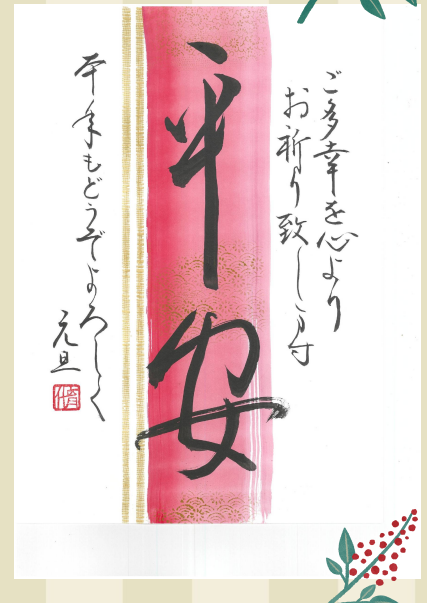 ご多幸を心より
お祈り致します
平安
本年もどうぞよろしく
元旦